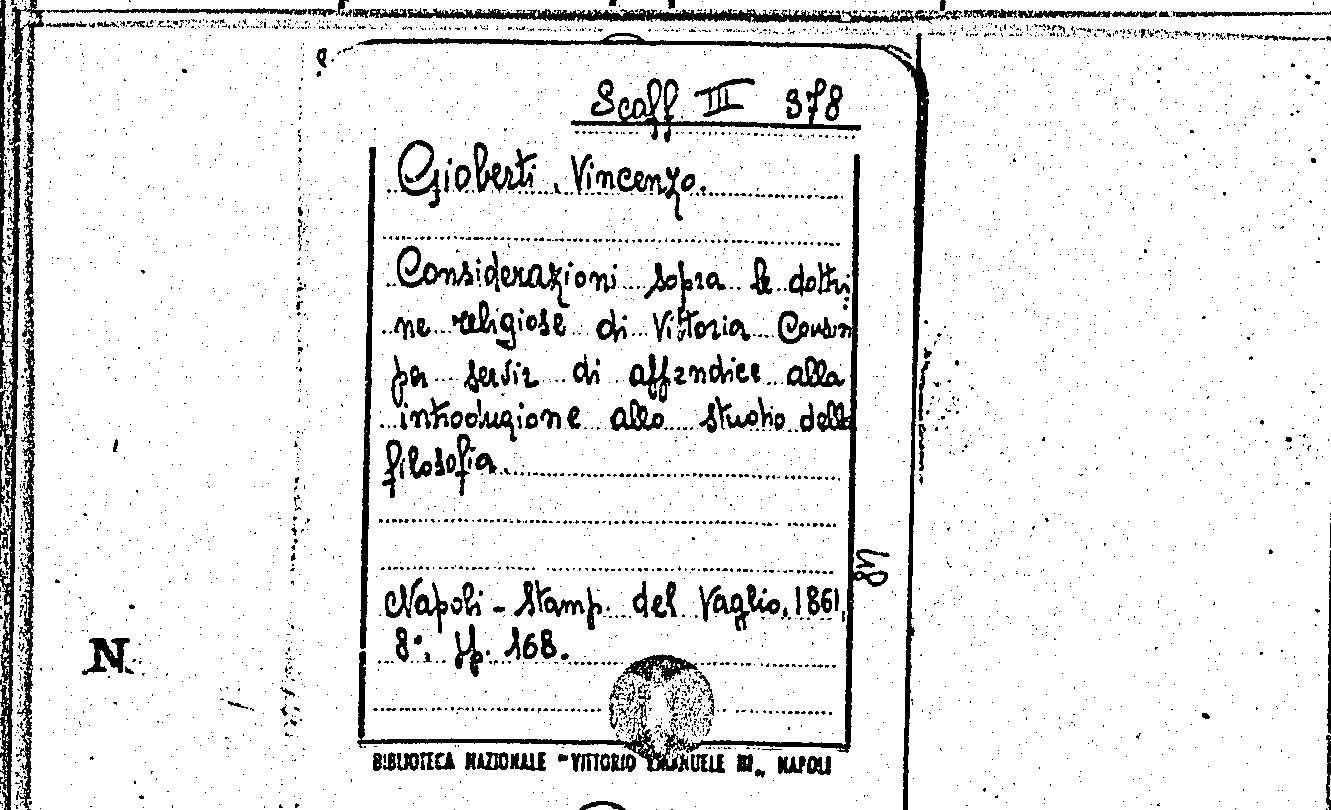 Scaff III 378
Gioberti, Vincenzo.
Considerazioni sopra le dottri
ne religiose di Vittoria Cousin
per servir di appendice alla
introduzione allo studio della
filosofia.
Napoli - Stamp. del Vaglio, 1861,
8°, pp. 168.
BIBLIOTECA NAZIONALE "VITTORIO EMANUELE III„ NAPOLI
N